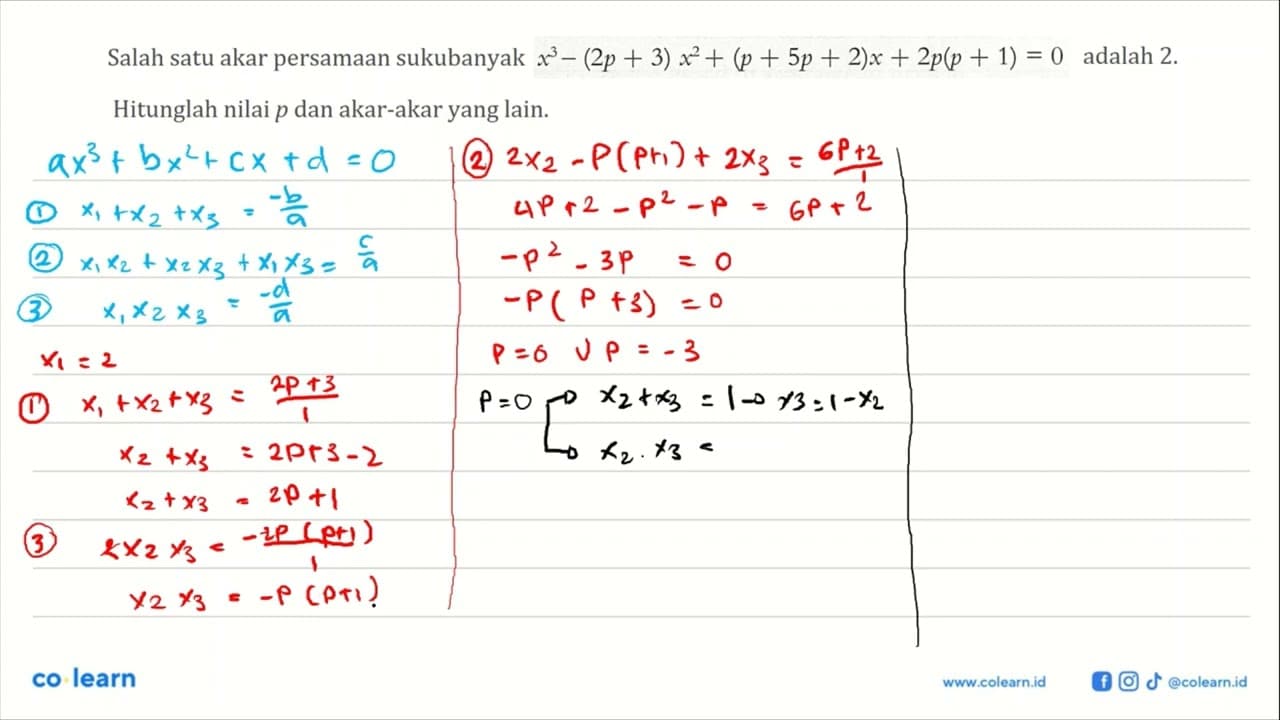 Salah satu akar persamaan sukubanyak x³ – (2p + 3) x² + (p + 5p + 2)x + 2p(p + 1) = 0 adalah 2.
Hitunglah nilai p dan akar-akar yang lain.
ax³ + bx² + cx + d = 0
① x₁ + x₂ + x₃ = -b/a
② x₁x₂ + x₂x₃ + x₁x₃ = c/a
③ x₁x₂x₃ = -d/a
x₁ = 2
① x₁ + x₂ + x₃ = 2p+3/1
x₂ + x₃ = 2p+3-2
x₂ + x₃ = 2p+1
③ 2x₂x₃ = -2p(p+1)/1
x₂x₃ = -p(p+1)
② 2x₂ - p(p+1) + 2x₃ = 6p+2/1
4p+2 - p² - p = 6p+2
-p² - 3p = 0
-p(p+3) = 0
p=0 ∪ p = -3
p=0 → x₂+x₃ = 1 → x₃=1-x₂
→ x₂.x₃ =
co learn
www.colearn.id
@colearn.id